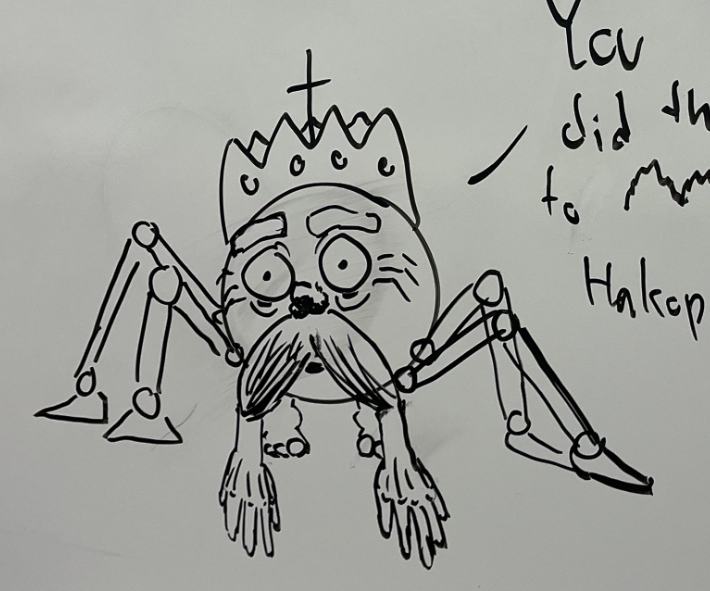 You
did th
to
Hakop